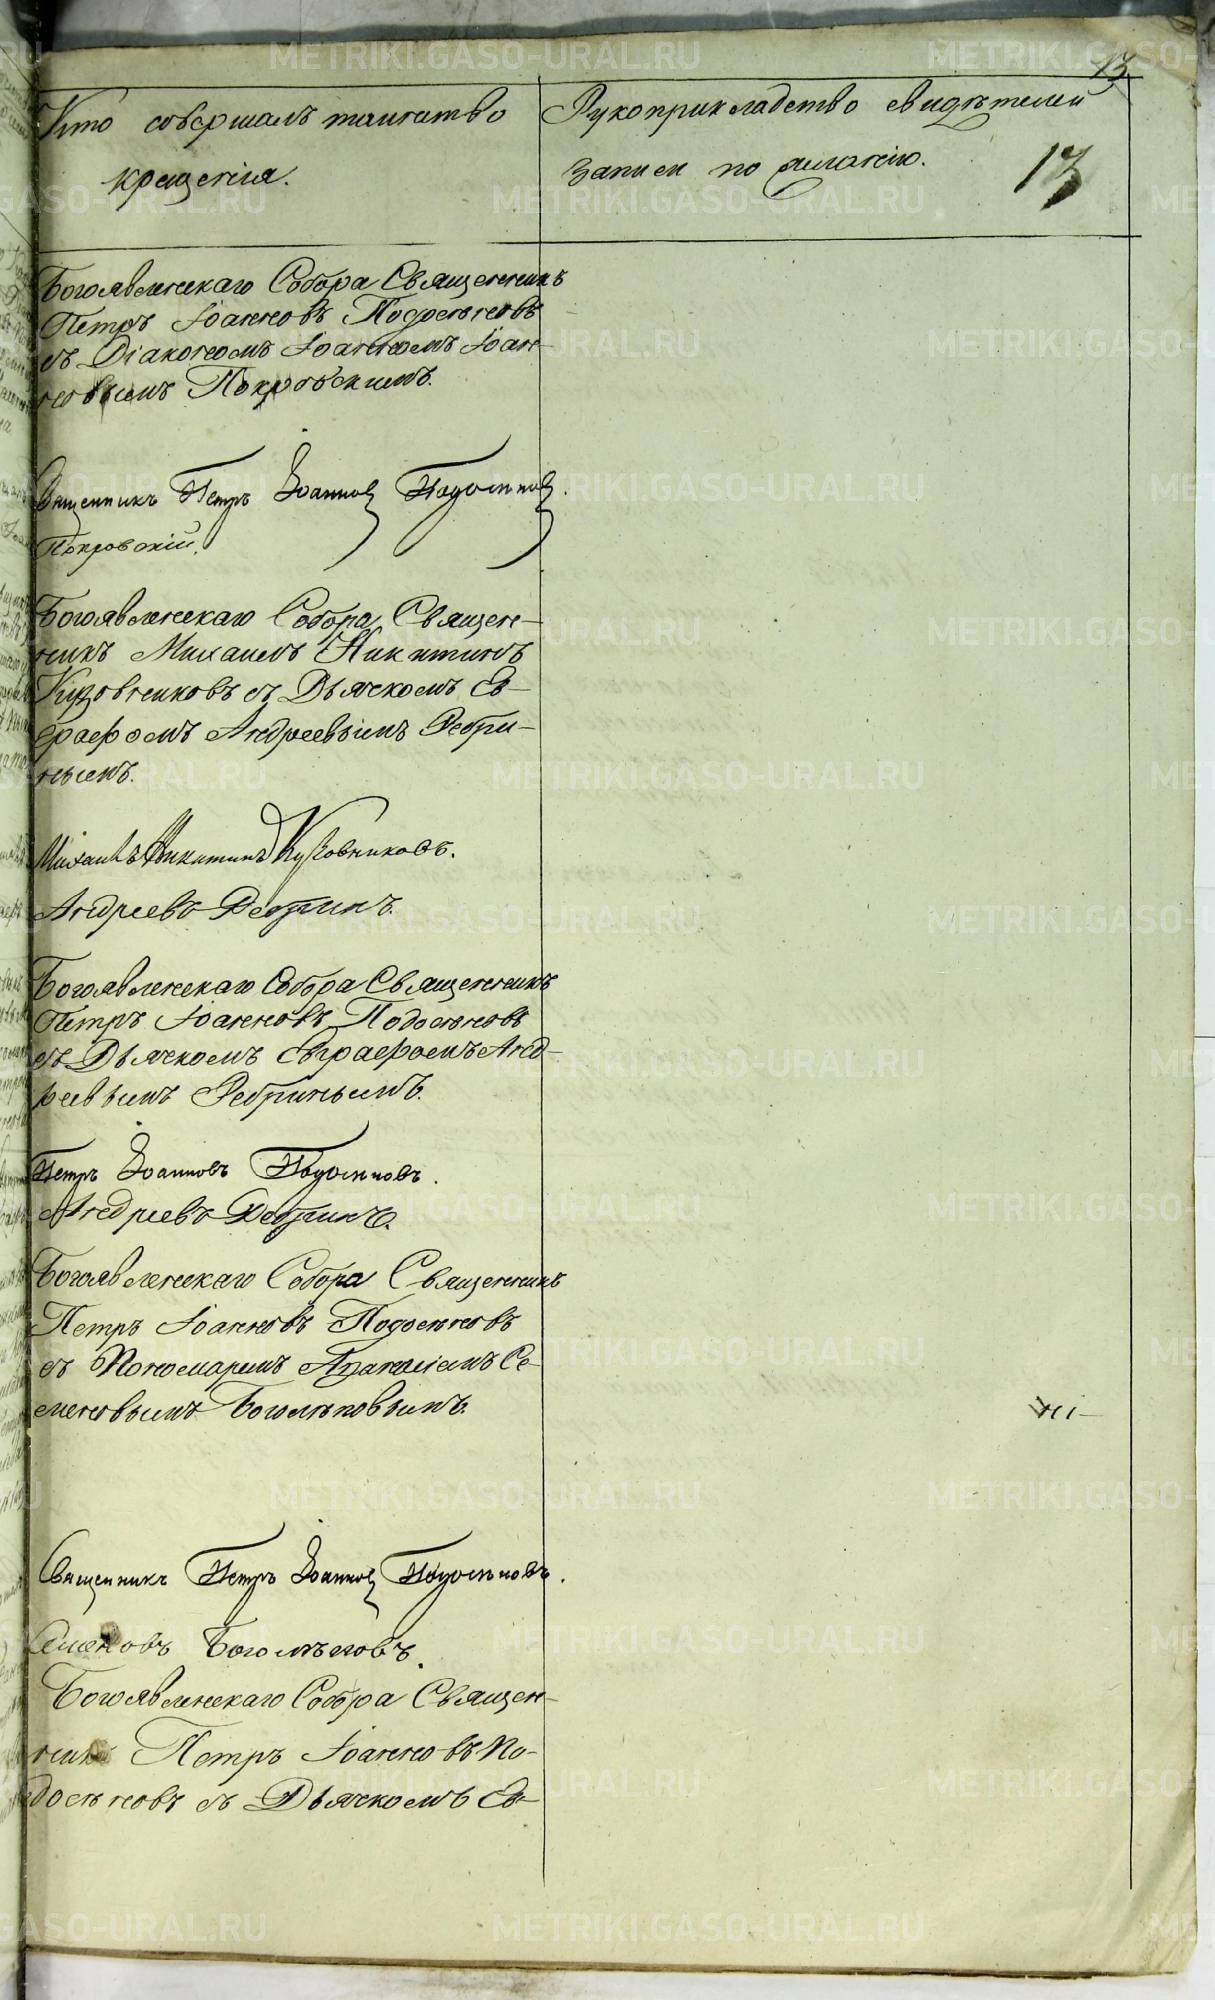 13
Кто совершалъ таинство
крещенія.
Рукоприкладство свидѣтелей
записи по желанію.
13
Богоявленскаго Собора Священникъ
Петръ Іоанновъ Подосеновъ
съ Діакономъ Іоанномъ Іоан-
новымъ Покровскимъ.
Священникъ Петръ Іоанновъ Подосеновъ.
Покровскій.
Богоявленскаго Собора Священ-
никъ Михаилъ Никитинъ
Кузовниковъ съ Дьячкомъ Ев-
графомъ Андреевымъ Ребри-
нымъ.
Михаилъ Никитинъ Кузовниковъ.
Андреевъ Ребринъ.
Богоявленскаго Собора Священникъ
Петръ Іоанновъ Подосеновъ
съ Дьячкомъ Евграфомъ Анд-
реевымъ Ребринымъ.
Петръ Іоанновъ Подосеновъ.
Андреевъ Ребринъ.
Богоявленскаго Собора Священникъ
Петръ Іоанновъ Подосеновъ
съ Пономаремъ Семе-
новымъ Боголѣповымъ.
Священникъ Петръ Іоанновъ Подосеновъ.
Семеновъ Боголѣповъ.
Богоявленскаго Собора Священ-
никъ Петръ Іоанновъ По-
досеновъ съ Дьячкомъ Ев-
METRIKI.GASO-URAL.RU